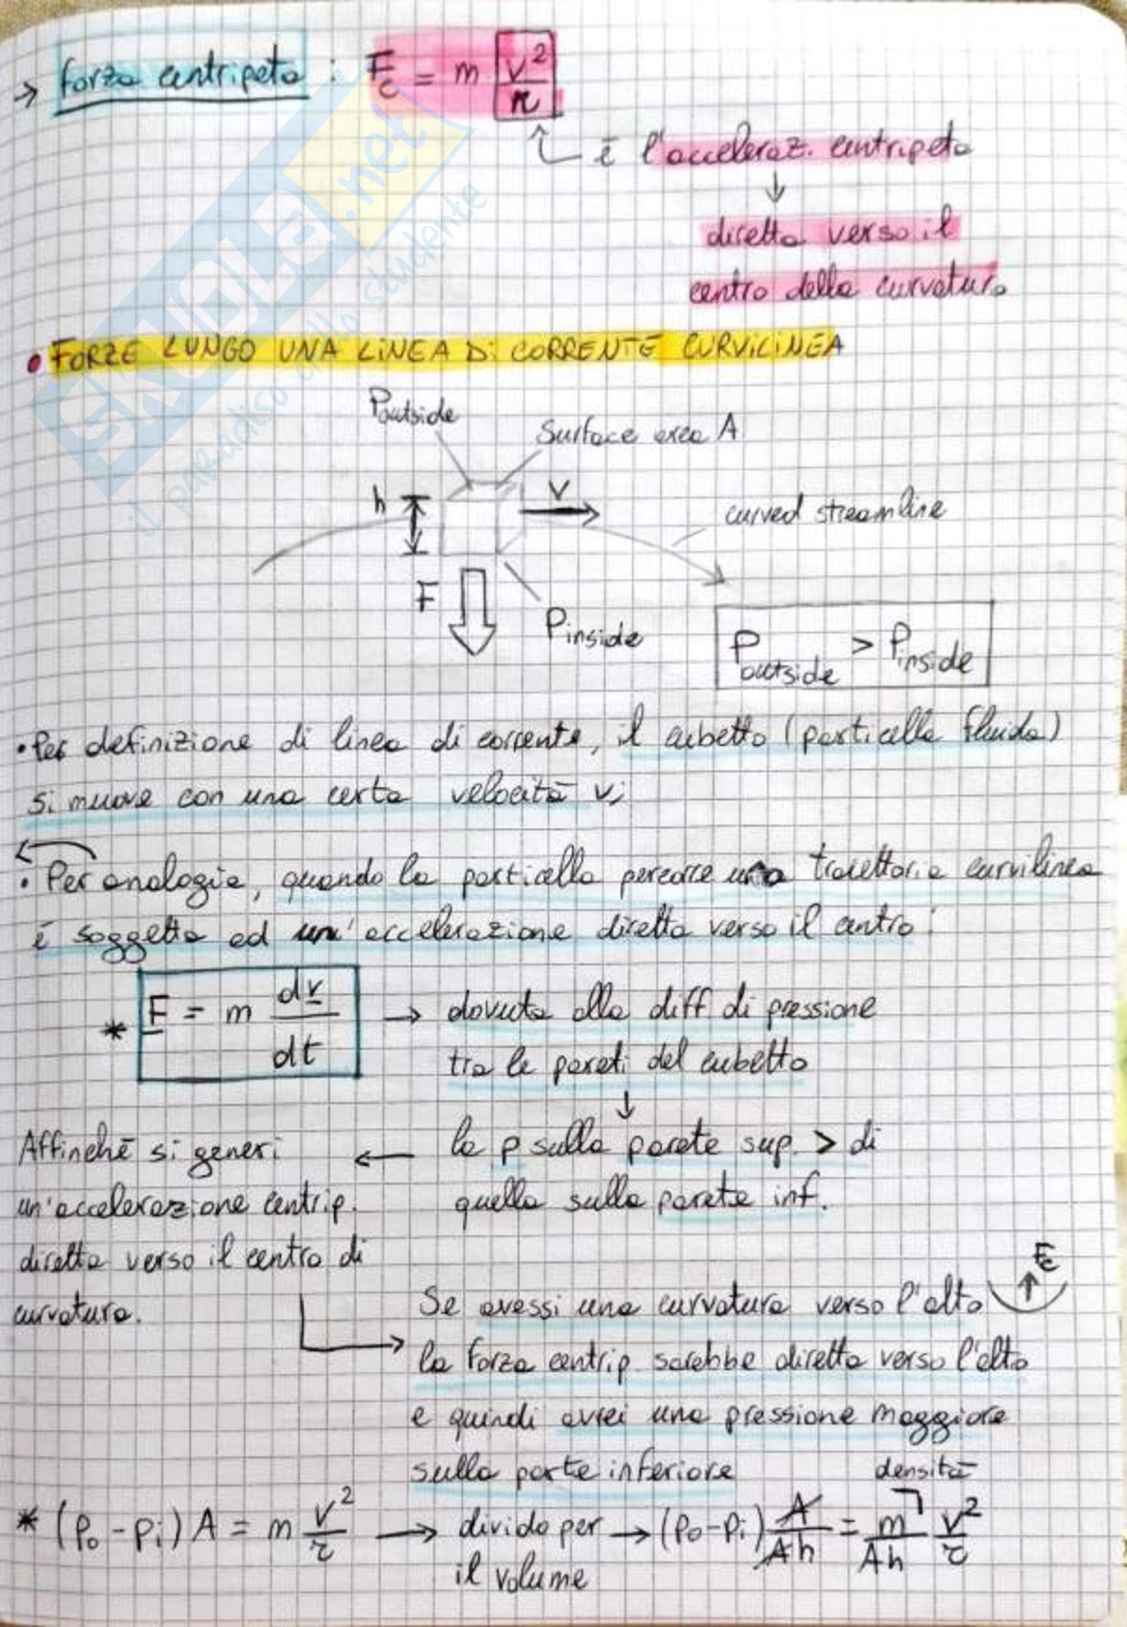 → forza centripeta : Fc = m v²/r
è l'acceleraz. centripeta
↓
diretta verso il
centro della curvatura
• FORZE LUNGO UNA LINEA DI CORRENTE CURVILINEA
Poutside
Surface area A
h
V
curved streamline
F
Pinside
Poutside > Pinside
• Per definizione di linea di corrente, il cubetto (particella fluida)
si muove con una certa velocità v;
• Per analogia, quando la particella percorre una traiettoria curvilinea
è soggetta ad un'accelerazione diretta verso il centro:
* F = m dv/dt → dovuta alla diff di pressione
tra le pareti del cubetto
↓
la p sulla parete sup. > di
quella sulla parete inf.
← Affinchè si generi
un'accelerazione centrip.
diretta verso il centro di
curvatura.
Fc
Se avessi una curvatura verso l'alto
la forza centrip. sarebbe diretta verso l'alto
e quindi avrei una pressione maggiore
sulla parte inferiore
densità
* (po - pi) A = m v²/r → divido per il volume → (po - pi) A/Ah = m/Ah v²/r
SKUOLA.net
il paradiso dello studente